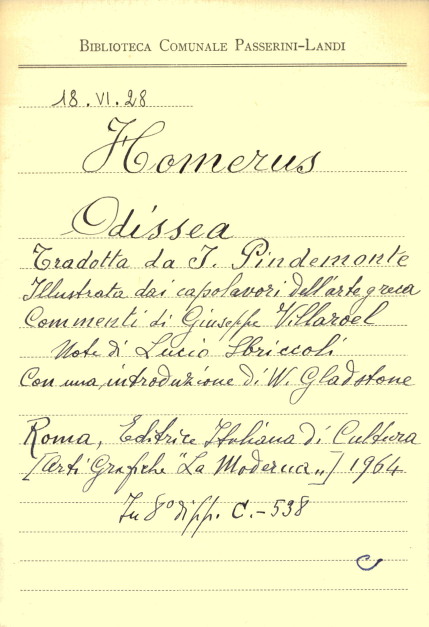 BIBLIOTECA COMUNALE PASSERINI-LANDI
18.VI.28
Homerus
Odissea
Tradotta da I. Pindemonte
Illustrata dai capolavori dell'arte greca
Commenti di Giuseppe Villaroel
Note di Lucio Sbriccoli
Con una introduzione di W. Gladstone
Roma, Editrice Italiana di Cultura
[Arti Grafiche "La Moderna„] 1964
In 8° di pp. C.-538